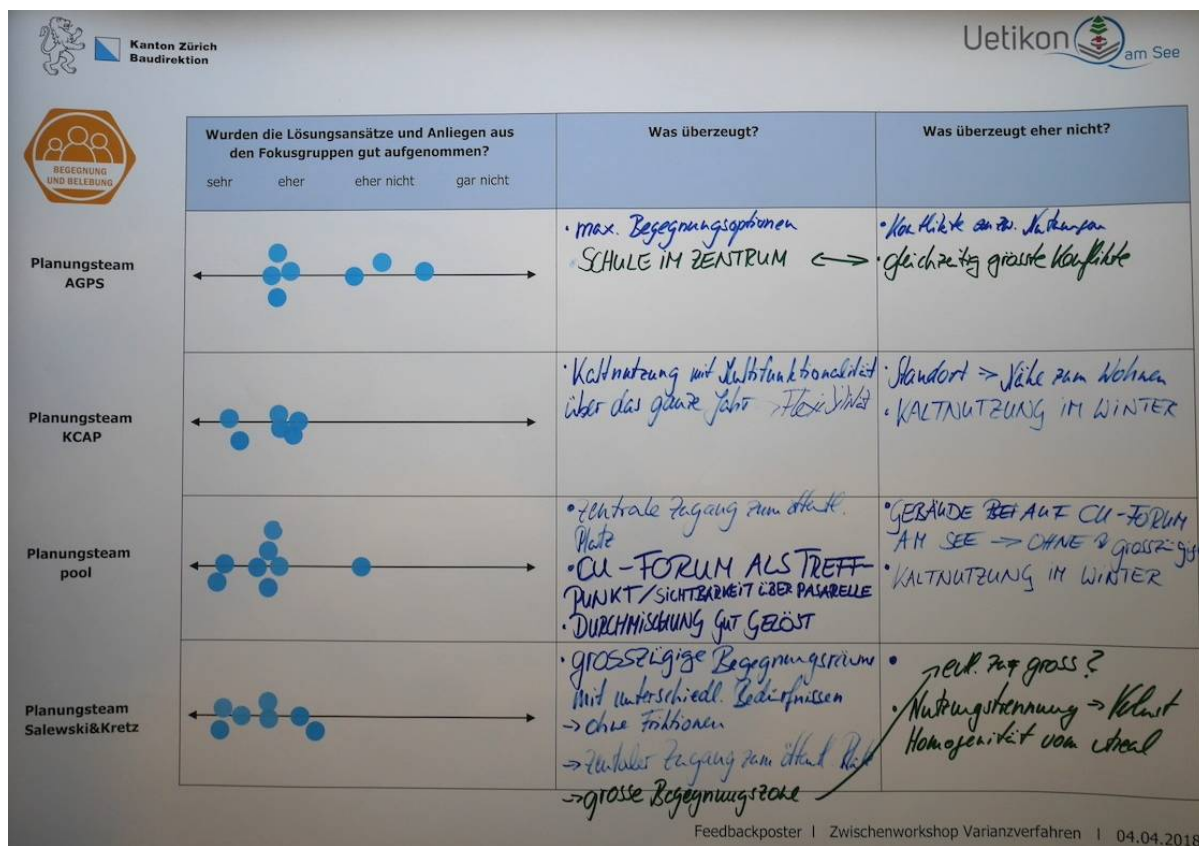 Kanton Zürich
Baudirektion
Uetikon
am See
BEGEGNUNG
UND BELEBUNG
Wurden die Lösungsansätze und Anliegen aus
den Fokusgruppen gut aufgenommen?
sehr eher eher nicht gar nicht
Was überzeugt?
Was überzeugt eher nicht?
Planungsteam
AGPS
• max. Begegnungsoptionen
SCHULE IM ZENTRUM
• Konflikte Nutzungen
• gleichzeitig grösste Konflikte
Planungsteam
KCAP
• Kaltnutzung mit Multifunktionalität
über das ganze Jahr → Flexibilität
• Standort → Nähe zum Wohnen
• KALTNUTZUNG IM WINTER
Planungsteam
pool
• zentrale Zugang zum öffentl.
Platz
• CU-FORUM ALS TREFF-
PUNKT/SICHTBARKEIT ÜBER PASARELLE
• DURCHMISCHUNG GUT GELÖST
• GEBÄUDE AUF CU-FORUM
AM SEE → OHNE grosszügig
• KALTNUTZUNG IM WINTER
Planungsteam
Salewski&Kretz
• grosszügige Begegnungsräume
mit unterschiedl. Bedürfnissen
→ ohne Friktionen
→ zentraler Zugang zum öffentl. Platz
→ grosse Begegnungszone
→ evtl. zu gross?
• Nutzungstrennung → Verlust
Homogenität vom Areal
Feedbackposter | Zwischenworkshop Varianzverfahren | 04.04.2018